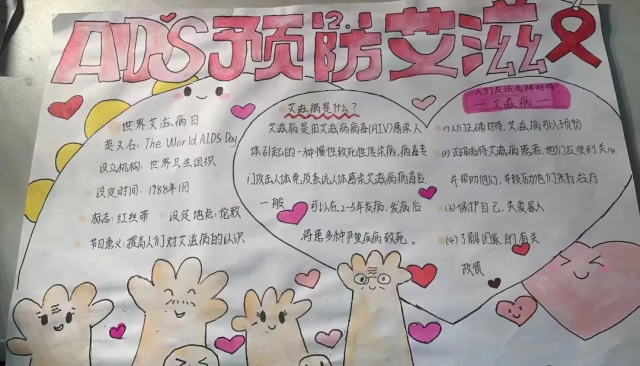 AIDS 预防艾滋
12.1
世界艾滋病日
英文名: The World AIDS Day
设立机构: 世界卫生组织
设定时间: 1988年1月
标志: 红丝带 设定地点: 伦敦
节日意义: 提高人们对艾滋病的认识
艾滋病是什么?
艾滋病是由艾滋病病毒(HIV)感染人
体引起的一种慢性致死性传染病,病毒专
门攻击人体免疫系统人体感染艾滋病病毒后
一般 可以在2-5年发病,发病后
将患多种严重疾病致死。
人们应该怎样对待
艾滋病
(1)人们正确对待,艾滋病可以预防
(2)正确看待艾滋病患者,他们应受到关心
并帮助他们,并鼓励他们来接治疗
(3)保护自己,关爱家人
(4)了解国家的有关
政策